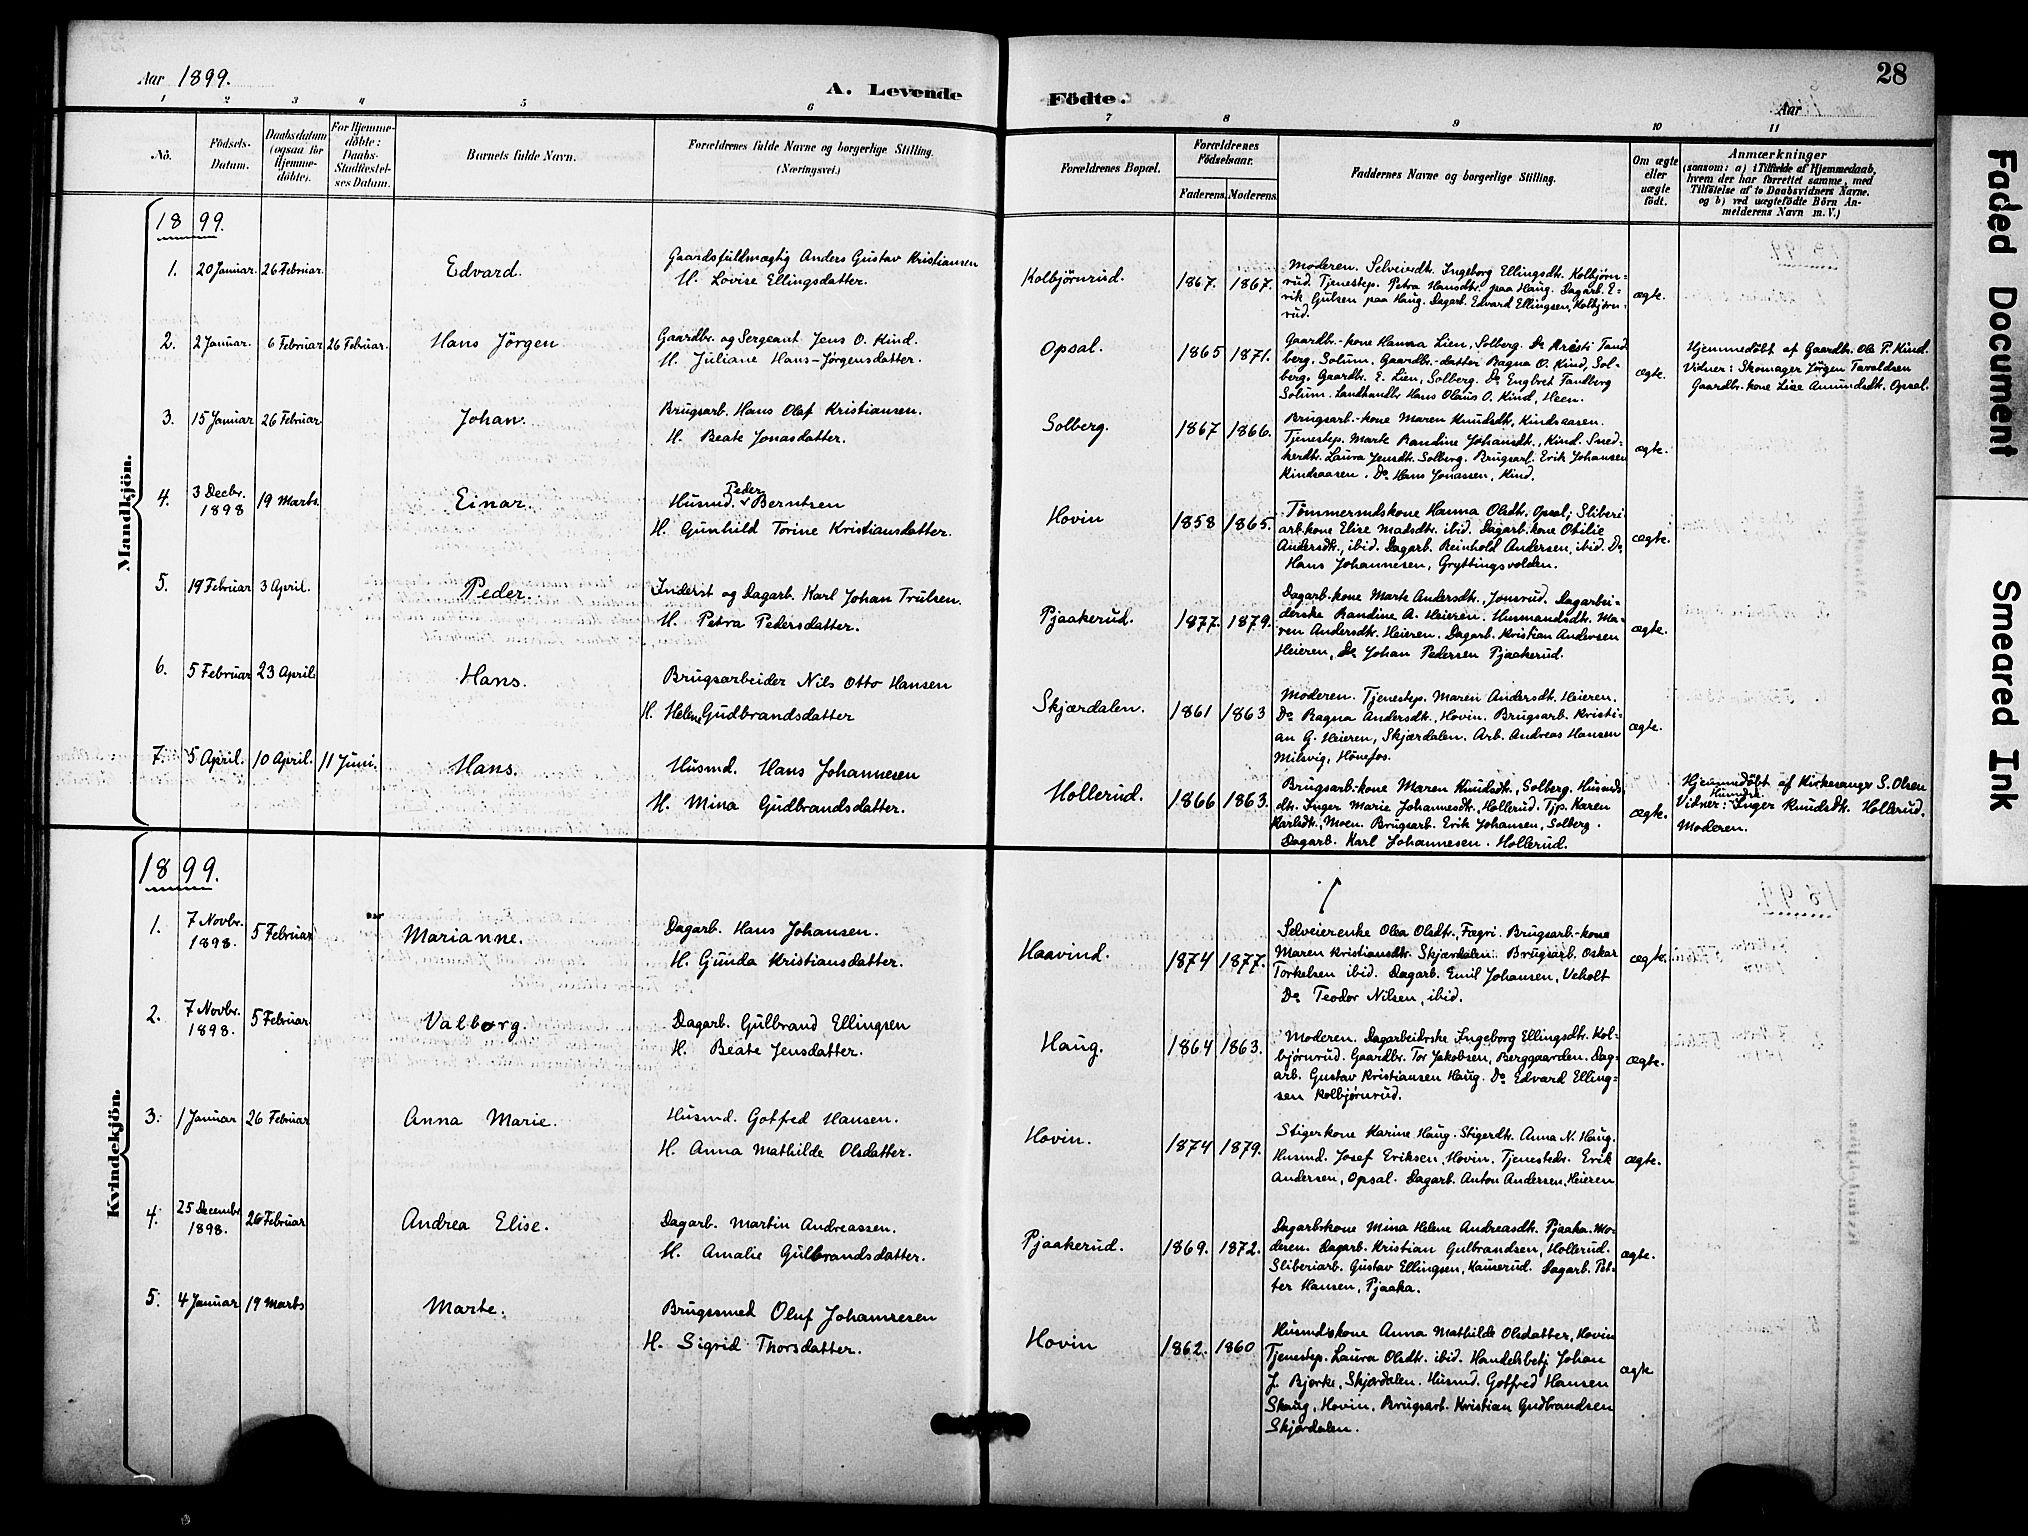 Aar 1899.
A. Levende Födte.
Aar
28
1 2 3 4 5 6 7 8 9 10 11
No.
Födsels-
Datum.
Daabsdatum
(ogsaa for
Hjemme-
döbte).
For Hjemme-
döbte:
Daabs-
Stadfæstel-
ses Datum.
Barnets fulde Navn.
Forældrenes fulde Navne og borgerlige Stilling.
(Næringsvei.)
Forældrenes Bopæl.
Forældrenes
Födselsaar.
Faderens. Moderens.
Faddernes Navne og borgerlige Stilling.
Om ægte
eller
uægte
födt.
Anmærkninger
(saasom: a) i Tilfælde af Hjemmedaab,
hvem der har forrettet samme, med
Tilföielse af to Daabsvidners Navne.
og b) ved uægtefödte Börn An-
melderens Navn m. V.)
Mandkjön.
1899.
1. 20 Januar. 26 Februar. Edvard.
Gaardsfuldmægtig Anders Gustav Kristiansen
H. Lovise Ellingsdatter.
Kolbjørnrud. 1867. 1867.
Moderen. Selveierdtr. Ingeborg Ellingsdtr. Kolbjørn-
rud. Tjenestep. Petra Hansdtr. paa Haug. Dagarb. E-
rik Gulsen paa Haug. Dagarb. Edvard Ellingsen, Kolbjørn-
rud.
ægte.
2. 2 Januar. 6 Februar 26 Februar. Hans Jörgen
Gaardbr. og Sergeant Jens O. Kind.
H. Juliane Hans-Jørgensdatter.
Opsal. 1865 1871.
Gaardbr.-kone Hanna Lien, Solberg. Do Kristi Tand
berg. Solum. Gaardbr.-datter Ragna O. Kind, Sol-
berg. Gaardbr. E. Lien, Solberg. Do Engbret Tandberg
Solum. Landhandlr Hans Olaus O. Kind, Heen.
ægte.
Hjemmedöbt af Gaardbr. Ole P. Kind.
Vidner: Skomager Jørgen Tavaldsen
Gaardbr.-kone Lise Amundsdtr. Opsal.
3. 15 Januar 26 Februar. Johan.
Brugsarb. Hans Olaf Kristiansen.
H. Beate Jonasdatter.
Solberg. 1867 1866.
Brugsarb.-kone Maren Knudsdtr. Kindsaasen.
Tjenestep. Marte Randine Johansdtr., Kind. Sned-
kerdtr. Laura Jensdtr. Solberg. Brugsarb. Erik Johansen
Kindsaasen. Do Hans Jonassen, Kind.
ægte.
4. 3 Decbr.
1898 19 Marts. Einar.
Peder
Husmd. v Berntsen
H. Gunhild Torine Kristiansdatter.
Hovin 1858 1865.
Tømmermdskone Hanna Olsdtr. Opsal; Sliberi-
arb.kone Elise Madsdtr. ibid. Dagarb. kone Otilie
Andersdtr., ibid. Dagarb. Reinhold Andersen, ibid. Do
Hans Johannesen, Gryttingsvolden.
ægte.
5. 19 Februar 3 April. Peder.
Inderst og Dagarb. Karl Johan Trulsen.
H. Petra Pedersdatter.
Pjaakerud. 1877. 1879.
Dagarb.kone Marte Andersdtr., Jonsrud. Dagarbei-
derske Randine A. Heieren. Husmandsdtr. Ma-
ren Andersdtr. Heieren. Dagarb. Kristian Andersen
Heieren, Do Johan Pedersen Pjaakerud.
ægte.
6. 5 Februar 23 April. Hans.
Brugsarbeider Nils Otto Hansen
H. Helene Gudbrandsdatter
Skjærdalen. 1861 1863
Moderen. Tjenestep. Maren Andersdtr. Heieren.
Do Ragna Andersdtr., Hovin. Brugsarb. Kristi-
an G. Heieren, Skjærdalen. Arb. Andreas Hansen
Milsvig, Hönefos.
ægte.
7. 5 April. 10 April. 11 Juni. Hans.
Husmd. Hans Johannesen
H. Mina Gudbrandsdatter.
Hollerud. 1866 1863.
Brugsarb.-kone Maren Knudsdtr. Solberg. Husmds
dtr. Inger Marie Johannesdtr. Hollerud. Tjp. Karen
Karlsdtr., Moen. Brugsarb. Erik Johansen, Solberg.
Dagarb. Karl Johannesen. Hollerud.
ægte.
Hjemmedöbt af Kirkesanger S. Olsen
Vidner: Inger Knudsdtr. Hollerud.
Moderen.
Kvindekjön.
1899.
1. 7 Novbr.
1898. 5 Februar Marianne.
Dagarb. Hans Johansen.
H. Gunda Kristiansdatter.
Haavind. 1874 1877.
Selveierenke Olea Olsdtr., Fægri. Brugsarb.-kone
Maren Kristiansdtr. Skjærdalen. Brugsarb. Oskar
Torkelsen ibid. Dagarb. Emil Johansen, Veholt
Do Teodor Nilsen, ibid.
ægte.
2. 7 Novbr.
1898. 5 Februar. Valborg.
Dagarb. Gulbrand Ellingsen
H. Beate Jensdatter.
Haug. 1864 1863.
Moderen. Dagarbeidrske Ingeborg Ellingsdtr. Kol-
bjørnrud. Gaardbr. Tor Jakobsen, Berggaarden. Dag-
arb. Gustav Kristiansen Haug. Do Edvard Elling-
sen Kolbjørnrud.
ægte.
3. 1 Januar 26 Februar Anna Marie.
Husmd. Gotfred Hansen.
H. Anna Mathilde Olsdatter.
Hovin. 1874 1879.
Stigerkone Karine Haug. Stigerdtr. Anna N. Haug.
Husmd. Josef Eriksen, Hovin. Tjenestedr. Erik
Andersen, Opsal. Dagarb. Anton Andersen, Heieren
ægte.
4. 25 Decembr
1898. 26 Februar Andrea Elise.
Dagarb. Martin Andreassen.
H. Amalie Gulbrandsdatter.
Pjaakerud. 1869. 1872.
Dagarb.kone Mina Helene Andreasdtr. Pjaaka. Mo-
deren. Dagarb. Kristian Gulbrandsen, Hollerud.
Sliberiarb. Gustav Ellingsen, Kamerud. Dagarb. Pet-
ter Hansen, Pjaaka.
ægte.
5. 4 Januar 19 Marts Marte.
Brugssmed Oluf Johannesen
H. Sigrid Thorsdatter.
Hovin 1862. 1860
Husmdskone Anna Mathilde Olsdatter, Hovin
Tjenestep. Laura Olsdtr. ibid. Handelsbetj. Johan
J. Bjørke, Skjærdalen. Husmd. Gotfred Hansen
Skaug, Hovin. Brugsarb. Kristian Gudbrandsen
Skjærdalen.
ægte
Faded Document
Smeared Ink